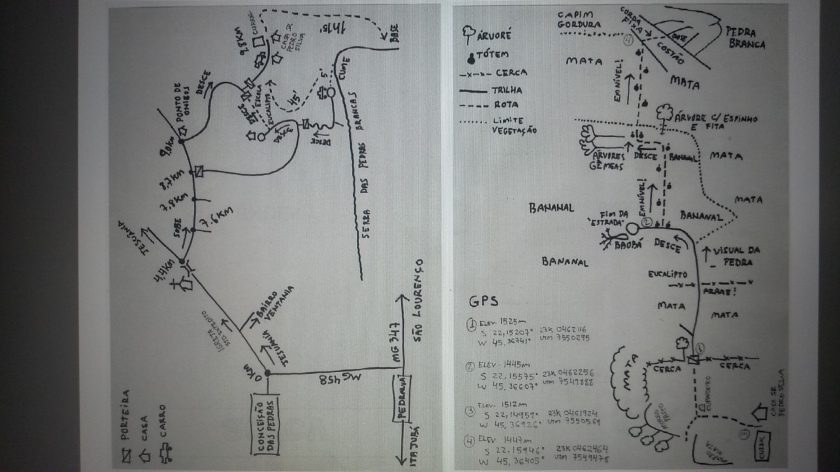 PORTEIRA
CASA
CARRO
CONCEIÇÃO
DAS PEDRAS
MG 458
PEDRALVA
ITAJUBÁ
MG 347
SÃO LOURENÇO
0 KM
TESUÂNIA
BAIRRO
VENTANIA
IGREJA
4,4 KM
TESUÂNIA
SOBE
7,6 KM
7,8 KM
8,7 KM
9,0 KM
PONTO DE
ONIBUS
DESCE
ESCOLA
EUCALIPTO
9,8 KM
CASA DE
PEDRO SILVA
1h15'
BASE
CUME
5'
45'
DESCE
SERRA DAS PEDRAS BRANCAS
ÁRVORE
TÓTEM
CERCA
TRILHA
ROTA
LIMITE
VEGETAÇÃO
CAPIM
GORDURA
CORDA
FIXA
COSTÃO
PEDRA
BRANCA
MATA
MATA
EM NÍVEL!
ÁRVORE C/ ESPINHO
E FITA
ÁRVORES
GÊMEAS
DESCE
BANANAL
MATA
MATA
EM NÍVEL!
BANANAL
FIM DA
"ESTRADA"
BAOBÁ
BANANAL
DESCE
BANANAL
VISUAL DA
PEDRA
EUCALIPTO
ARAME!
MATA
MATA
CERCA
CERCA
MATA
CASA DE
PEDRO SILVA
GPS
1 ELEV 1525m
2 ELEV. 1445m
S 22,15575° 23K 0462256
W 45,36607° UTM 7549888
3 ELEV. 1512m
4 ELEV 1447m
S 22,15946° 23K 0462464
W 45,36405° UTM 7549478